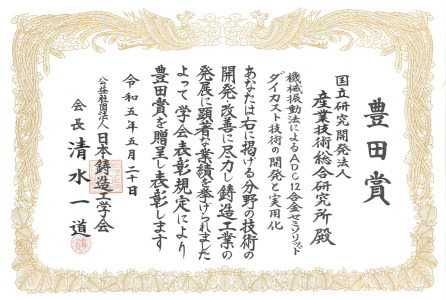 豊田賞
国立研究開発法人
産業技術総合研究所 殿
機械振動法によるADC12合金セミソリッド
ダイカスト技術の開発と実用化
あなたは右に掲げる分野の技術の
開発・改善に尽力し鋳造工業の
発展に顕著な業績を挙げられました
よって学会表彰規定により
豊田賞を贈呈し表彰します
令和五年五月二十日
公益社団法人日本鋳造工学会
会長 清水一道